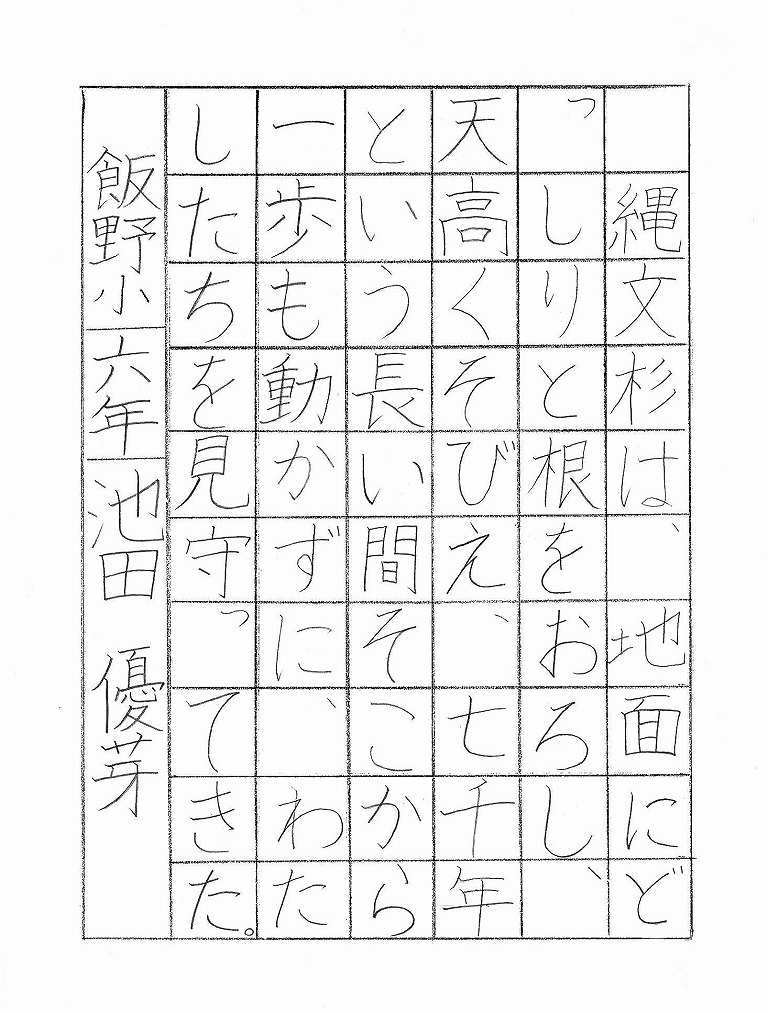 縄文杉は、地面にど
っしりと根をおろし、
天高くそびえ、七千年
という長い間そこから
一歩も動かずに、わた
したちを見守ってきた。
飯野小 六年 池田 優芽